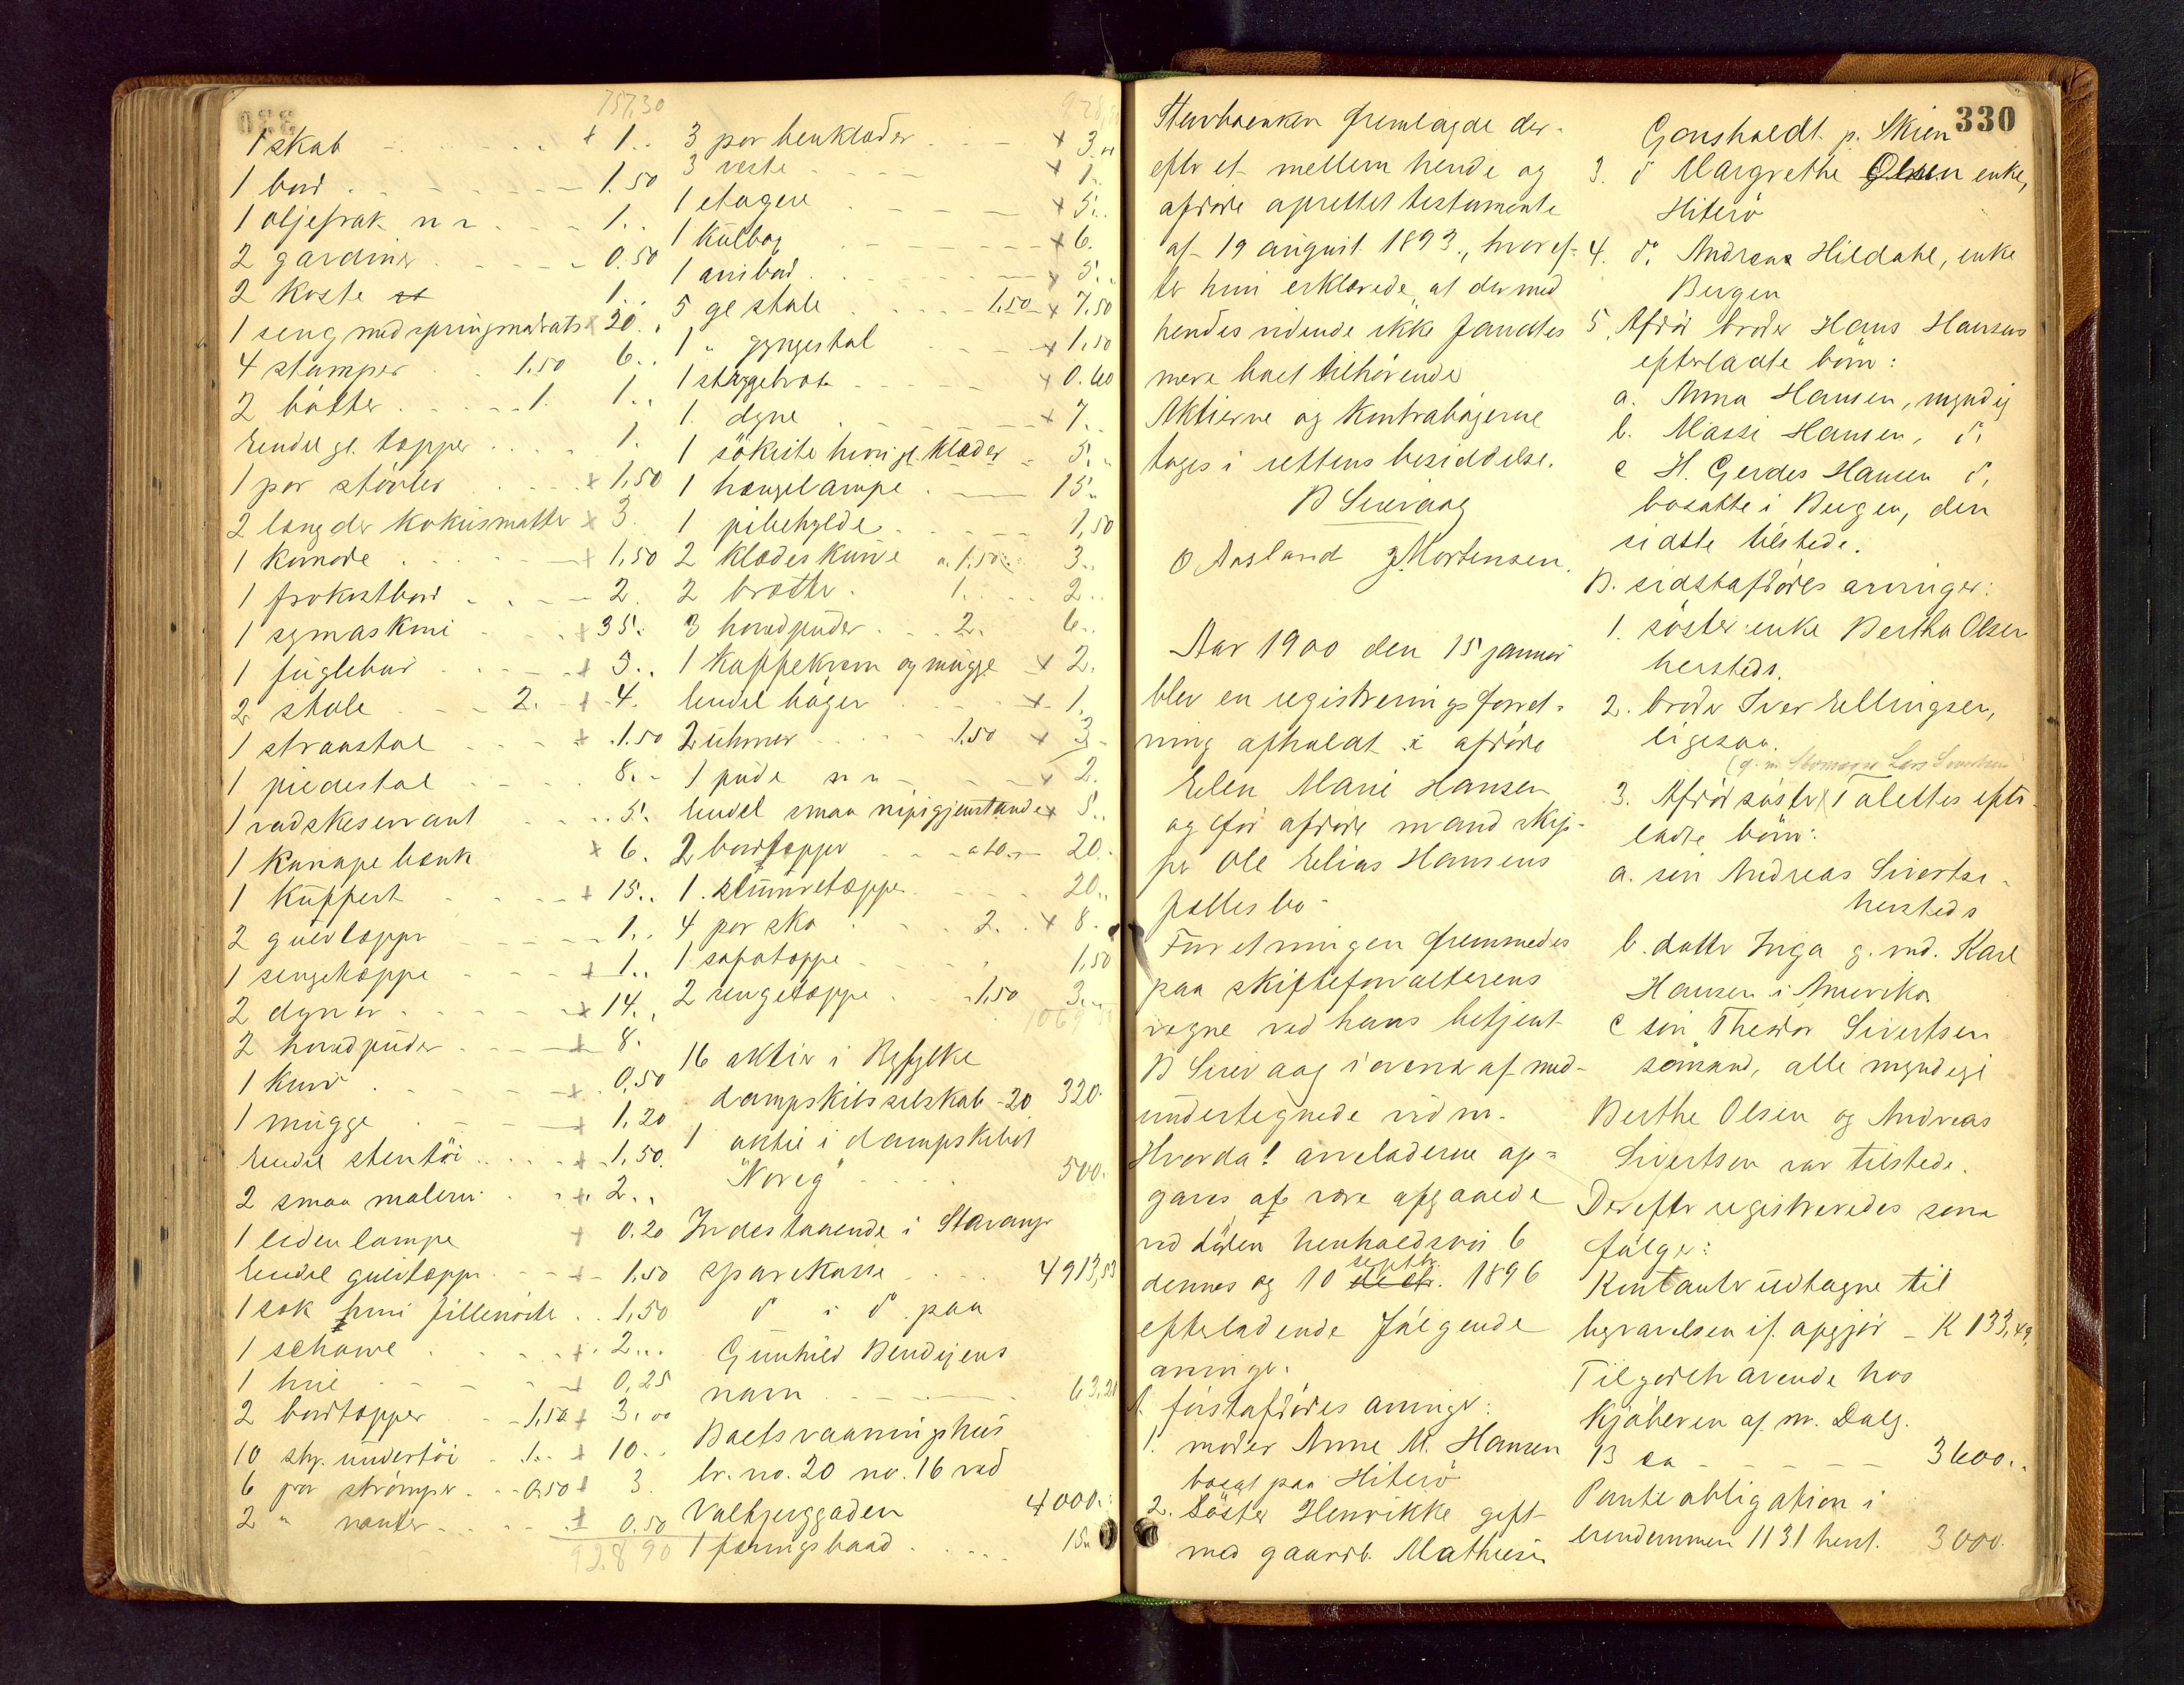 757,30
1 skab + 1..
1 bord 1.50
1 oljefrak n n 1..
2 gardiner 0.50
2 koste 1...
1 seng med springmadrats + 20..
4 stamper 1,50 6..
2 bøtter 1. 1..
Endel gl. tæpper 1.
1 par støvler + 1,50
2 længder kokusmatter + 3.
1 komode + 1,50
1 frokostbord 2.
1 symaskine + 35.
1 fuglebur + 3..
2 stole 2. + 4.
1 straastol + 1.50
1 piedestal 8..
1 vadskeservant 5.
1 kanapebænk + 6.
1 kuffert + 15..
2 gulvtæpper 1..
1 sengetæppe + 1..
2 dyner + 14..
2 hovedpuder + 8.
1 kurv + 0,50
1 mugge + 1,20
Endel stentøi + 1,50
2 smaa malerier + 2..
1 liden lampe + 0.20
Endel gulvtæpper + 1,50
1 sæk hvori filleryer 1,50
1 schawl + 2...
1 hue + 0,25
2 bordtæpper 1,50 + 3,00
10 stk. undertøi 1.. + 10..
6 par strømper 0,50 + 3.
2 " vanter + 0.50
928 90
928,90
3 par benklæder + 3..
3 veste + 1..
1 etagere + 5..
1 kulbox + 6.
1 anibord + 5..
5 gl stole 1,50 + 7,50
1 " gyngestol + 1,50
1 stryggebræt + 0.60
1. dyne + 7..
1 søkiste hvori gl. klæder 5..
1 hængelampe 15..
1 pibehylde 1,50
2 klædeskurve a 1,50 3..
2 brætte 1. 2..
3 hovedpuder 2. 6..
1 kaffekværn og mugge + 2.
Endel bøger + 1.
2 uhrner 1,50 + 3
1 pude n n + 2.
Endel smaa nipsgjenstande + 5..
2 bordtæpper a 10.. 20.
1. stuevetæppe 20..
4 par sko 2. + 8.
1 sofatæppe 1,50
2 sengetæpper 1,50 3..
16 aktier i Ryfylke
dampskibsselskab - 20 320.
1 aktie i dampskibet
"Noreg" 500.
Indestaaende i Stavanger
sparekasse 4913,53
d° i d° paa
Gunhild Bendixens
navn 63,21
Boets vaaningshus
br. no. 20 no. 16 ved
Valbjerggaden 4000.
1 færingsbaad 15..
Stervboenken fremlagde der-
efter et mellem hende og
afdøde oprettet testamente
af 19 august 1893., hvoref-
ter hun erklærede, at der med
hendes vidende ikke fandtes
mere boet tilhørende
Aktierne og kontrabøgerne
toges i rettens besiddelse.
B Sirevaag
O Aasland J. Mortensen.
Aar 1900 den 15 januar
blev en registreringsforret-
ning afholdt i afdøde
Elen Marie Hansen
og før afdøde mand skip-
per Ole Elias Hansens
fællesbo-
Forretningen fremmedes
paa skifteforvalterens
vegne ved hans betjent
B Sirevaag i overvær af med-
undertegnede vidner.
Hvorda! arveladerne op-
gaves at være afgaaede
ved døden henholdsvis 6
dennes og 10 septbr. 1896
efterladende følgende
arvinger.
A. førstafdødes arvinger:
1. moder Anne M. Hansen
boend paa Hiterø
2. Søster Henrikke gift
med gaardb. Mathiesen
330
Gonsholdt p. Skien
3. d° Margrethe Olsen enke,
Hiterø
4. d°. Andreas Hildahl, enke
Bergen
5. Afdød broder Hans Hansens
efterladte børn:
a. Anna Hansen, myndig
b. Massi Hansen, d°.
c H. Gerdes Hansen d°,
bosatte i Bergen, den
sidste tilstede.
B. sidstafdødes arvinger:
1. søster enke Bertha Olsen
hersteds.
2. broder Iver Ellingsen,
ligesaa.
3. Afdød søster Talettes efter-
ladte børn:
a. søn Andreas Sivertsen
hersteds
b. datter Inga g. md. Karl
Hansen i Amerika
c søn Theodor Sivertsen
sømand, alle myndige
Berthe Olsen og Andreas
Sivertsen var tilstede.
Derefter registreredes som
følger:
Kontanter udtagne til
begravelsen if. opgjør - K 133,49,
Tilgodehavende hos
kjøberen af mr. Dalg.
13 ca - 3600..
Panteobligation i
eiendommen 1131 herst. 3000.